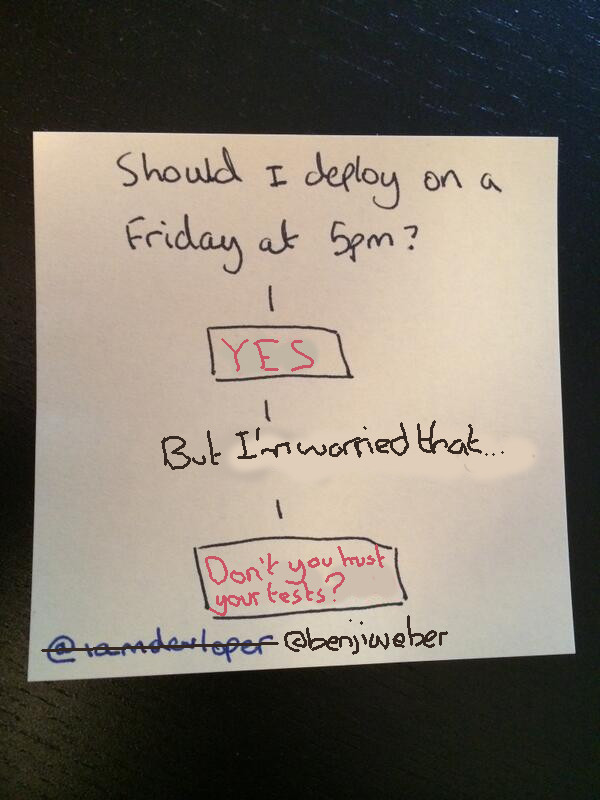 Should I deploy on a
Friday at 5pm?
YES
But I'm worried that...
Don't you trust
your tests?
@iamdevloper @benjiweber